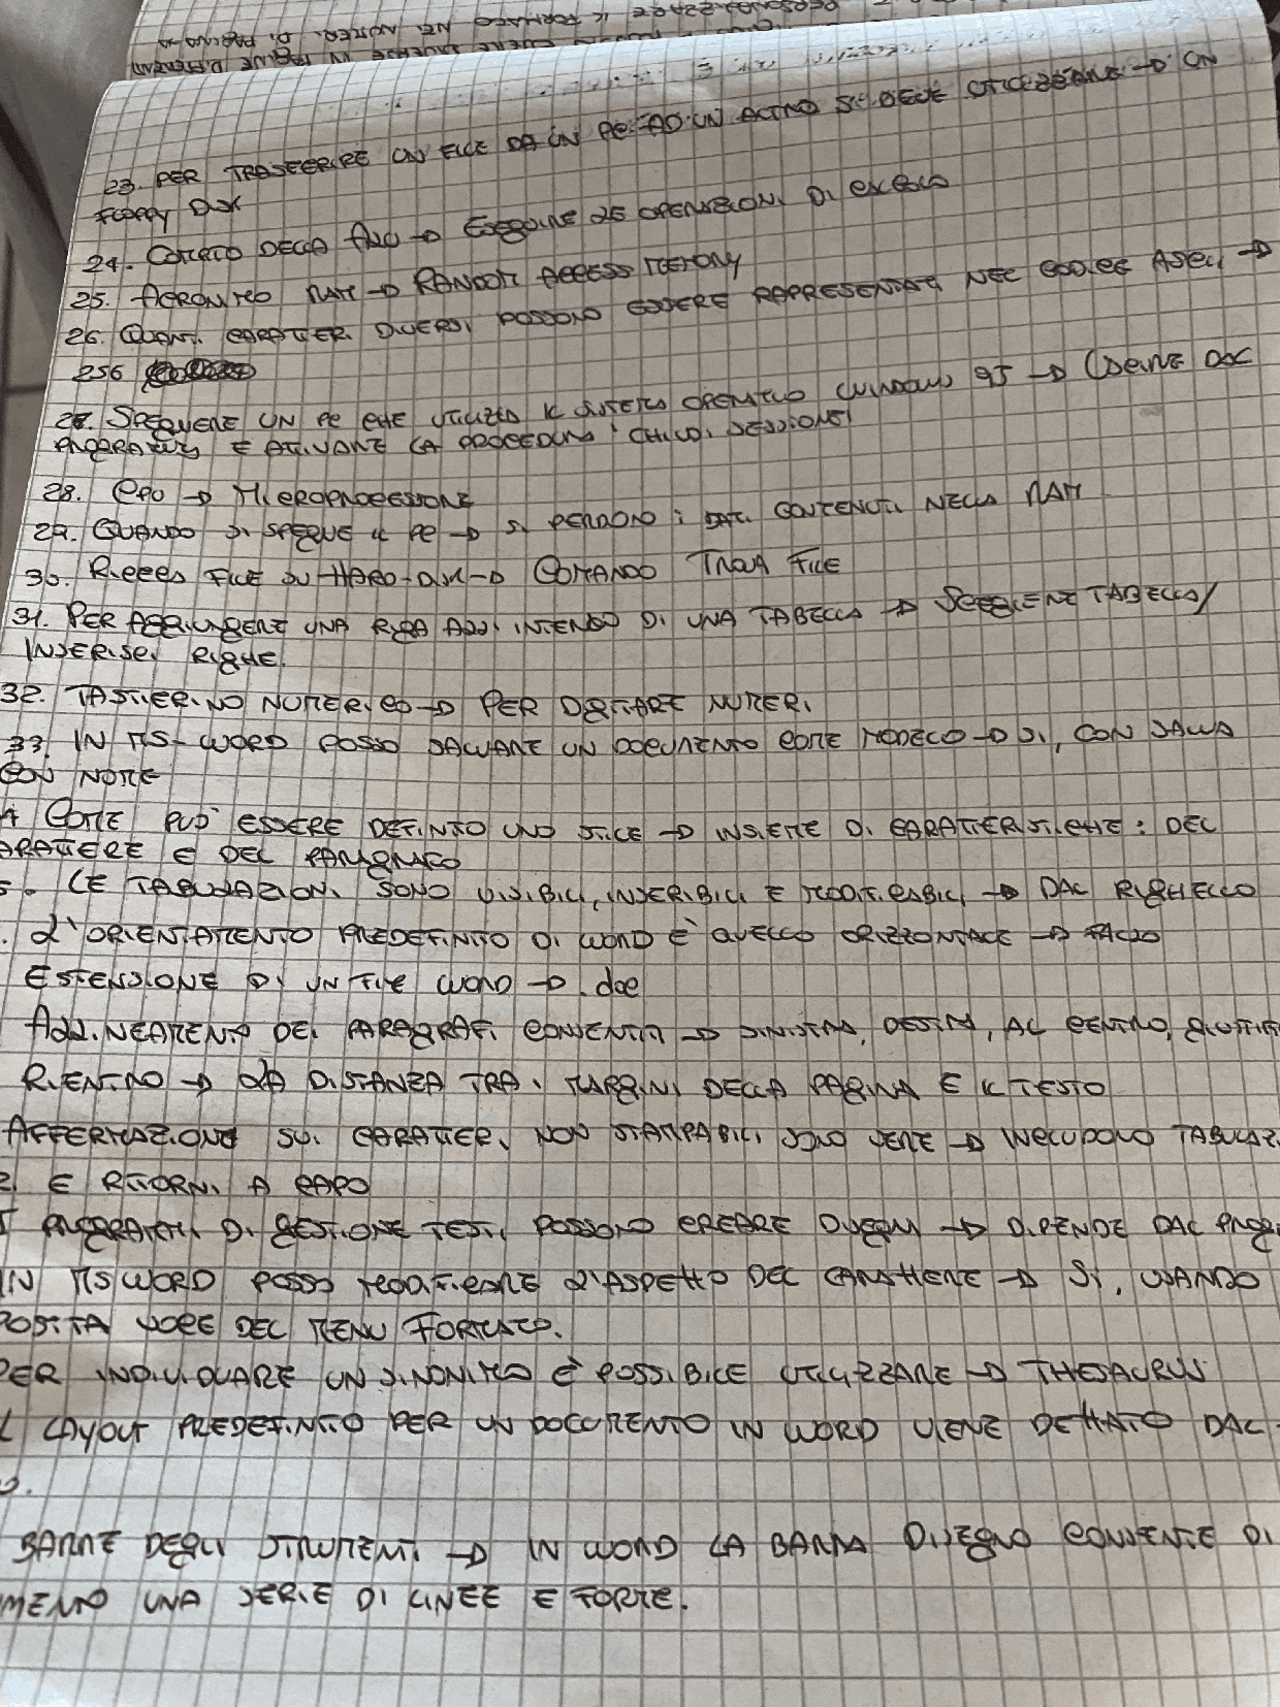 PERSONALIZZARE IL FORMATO NEI NUMERI DI PAGINA
INVERSE IN PAGINE DIFFERENTI
23. PER TRASFERIRE UN FILE DA UN PC AD UN ALTRO SI DEVE UTILIZZARE → UN
FLOPPY DISK
24. COMPITO DELLA ALU → ESEGUIRE LE OPERAZIONI DI CALCOLO
25. ACRONIMO RAM → RANDOM ACCESS MEMORY
26. QUANTI CARATTERI DIVERSI POSSONO ESSERE RAPPRESENTATI NEL CODICE ASCII →
256
27. SPEGNERE UN PC CHE UTILIZZA IL SISTEMA OPERATIVO WINDOWS 95 → USCIRE DAL
PROGRAMMA E ATTIVARE LA PROCEDURA "CHIUDI SESSIONE"
28. CPU → MICROPROCESSORE
29. QUANDO SI SPEGNE IL PC → SI PERDONO I DATI CONTENUTI NELLA RAM
30. RICERCA FILE SU HARD-DISK → COMANDO TROVA FILE
31. PER AGGIUNGERE UNA RIGA ALL'INTERNO DI UNA TABELLA → SCEGLIERE TABELLA/
INSERISCI RIGHE.
32. TASTIERINO NUMERICO → PER DIGITARE NUMERI
33. IN MS-WORD POSSO SALVARE UN DOCUMENTO COME MODELLO → SI, CON SALVA
CON NOME
4 COME PUO' ESSERE DEFINITO UNO STILE → INSIEME DI CARATTERISTICHE: DEL
ARATTERE E DEL PARAGRAFO
5. LE TABULAZIONI SONO VISIBILI, INSERIBILI E MODIFICABILI → DAL RIGHELLO
. L'ORIENTAMENTO PREDEFINITO DI WORD E' QUELLO ORIZZONTALE → FALSO
ESTENSIONE DI UN FILE WORD → .doc
ALLINEAMENTO DEI PARAGRAFI CONSENTITI → SINISTRA, DESTRA, AL CENTRO, GIUSTIFI
RIENTRO → LA DISTANZA TRA I MARGINI DELLA PAGINA E IL TESTO
AFFERMAZIONI SUI CARATTERI NON STAMPABILI SONO VERE → INCLUDONO TABULAZ
E RITORNI A CAPO
I PROGRAMMI DI GESTIONE TESTI POSSONO CREARE DISEGNI → DIPENDE DAL PROG
IN MS WORD POSSO MODIFICARE L'ASPETTO DEL CARATTERE → SI, USANDO
POSITA VOCE DEL MENU FORMATO.
PER INDIVIDUARE UN SINONIMO È POSSIBILE UTILIZZARE → THESAURUS
L LAYOUT PREDEFINITO PER UN DOCUMENTO IN WORD VIENE DETTATO DAL
O.
BARRE DEGLI STRUMENTI → IN WORD LA BARRA DISEGNO CONSENTE DI
UNA SERIE DI LINEE E FORME.